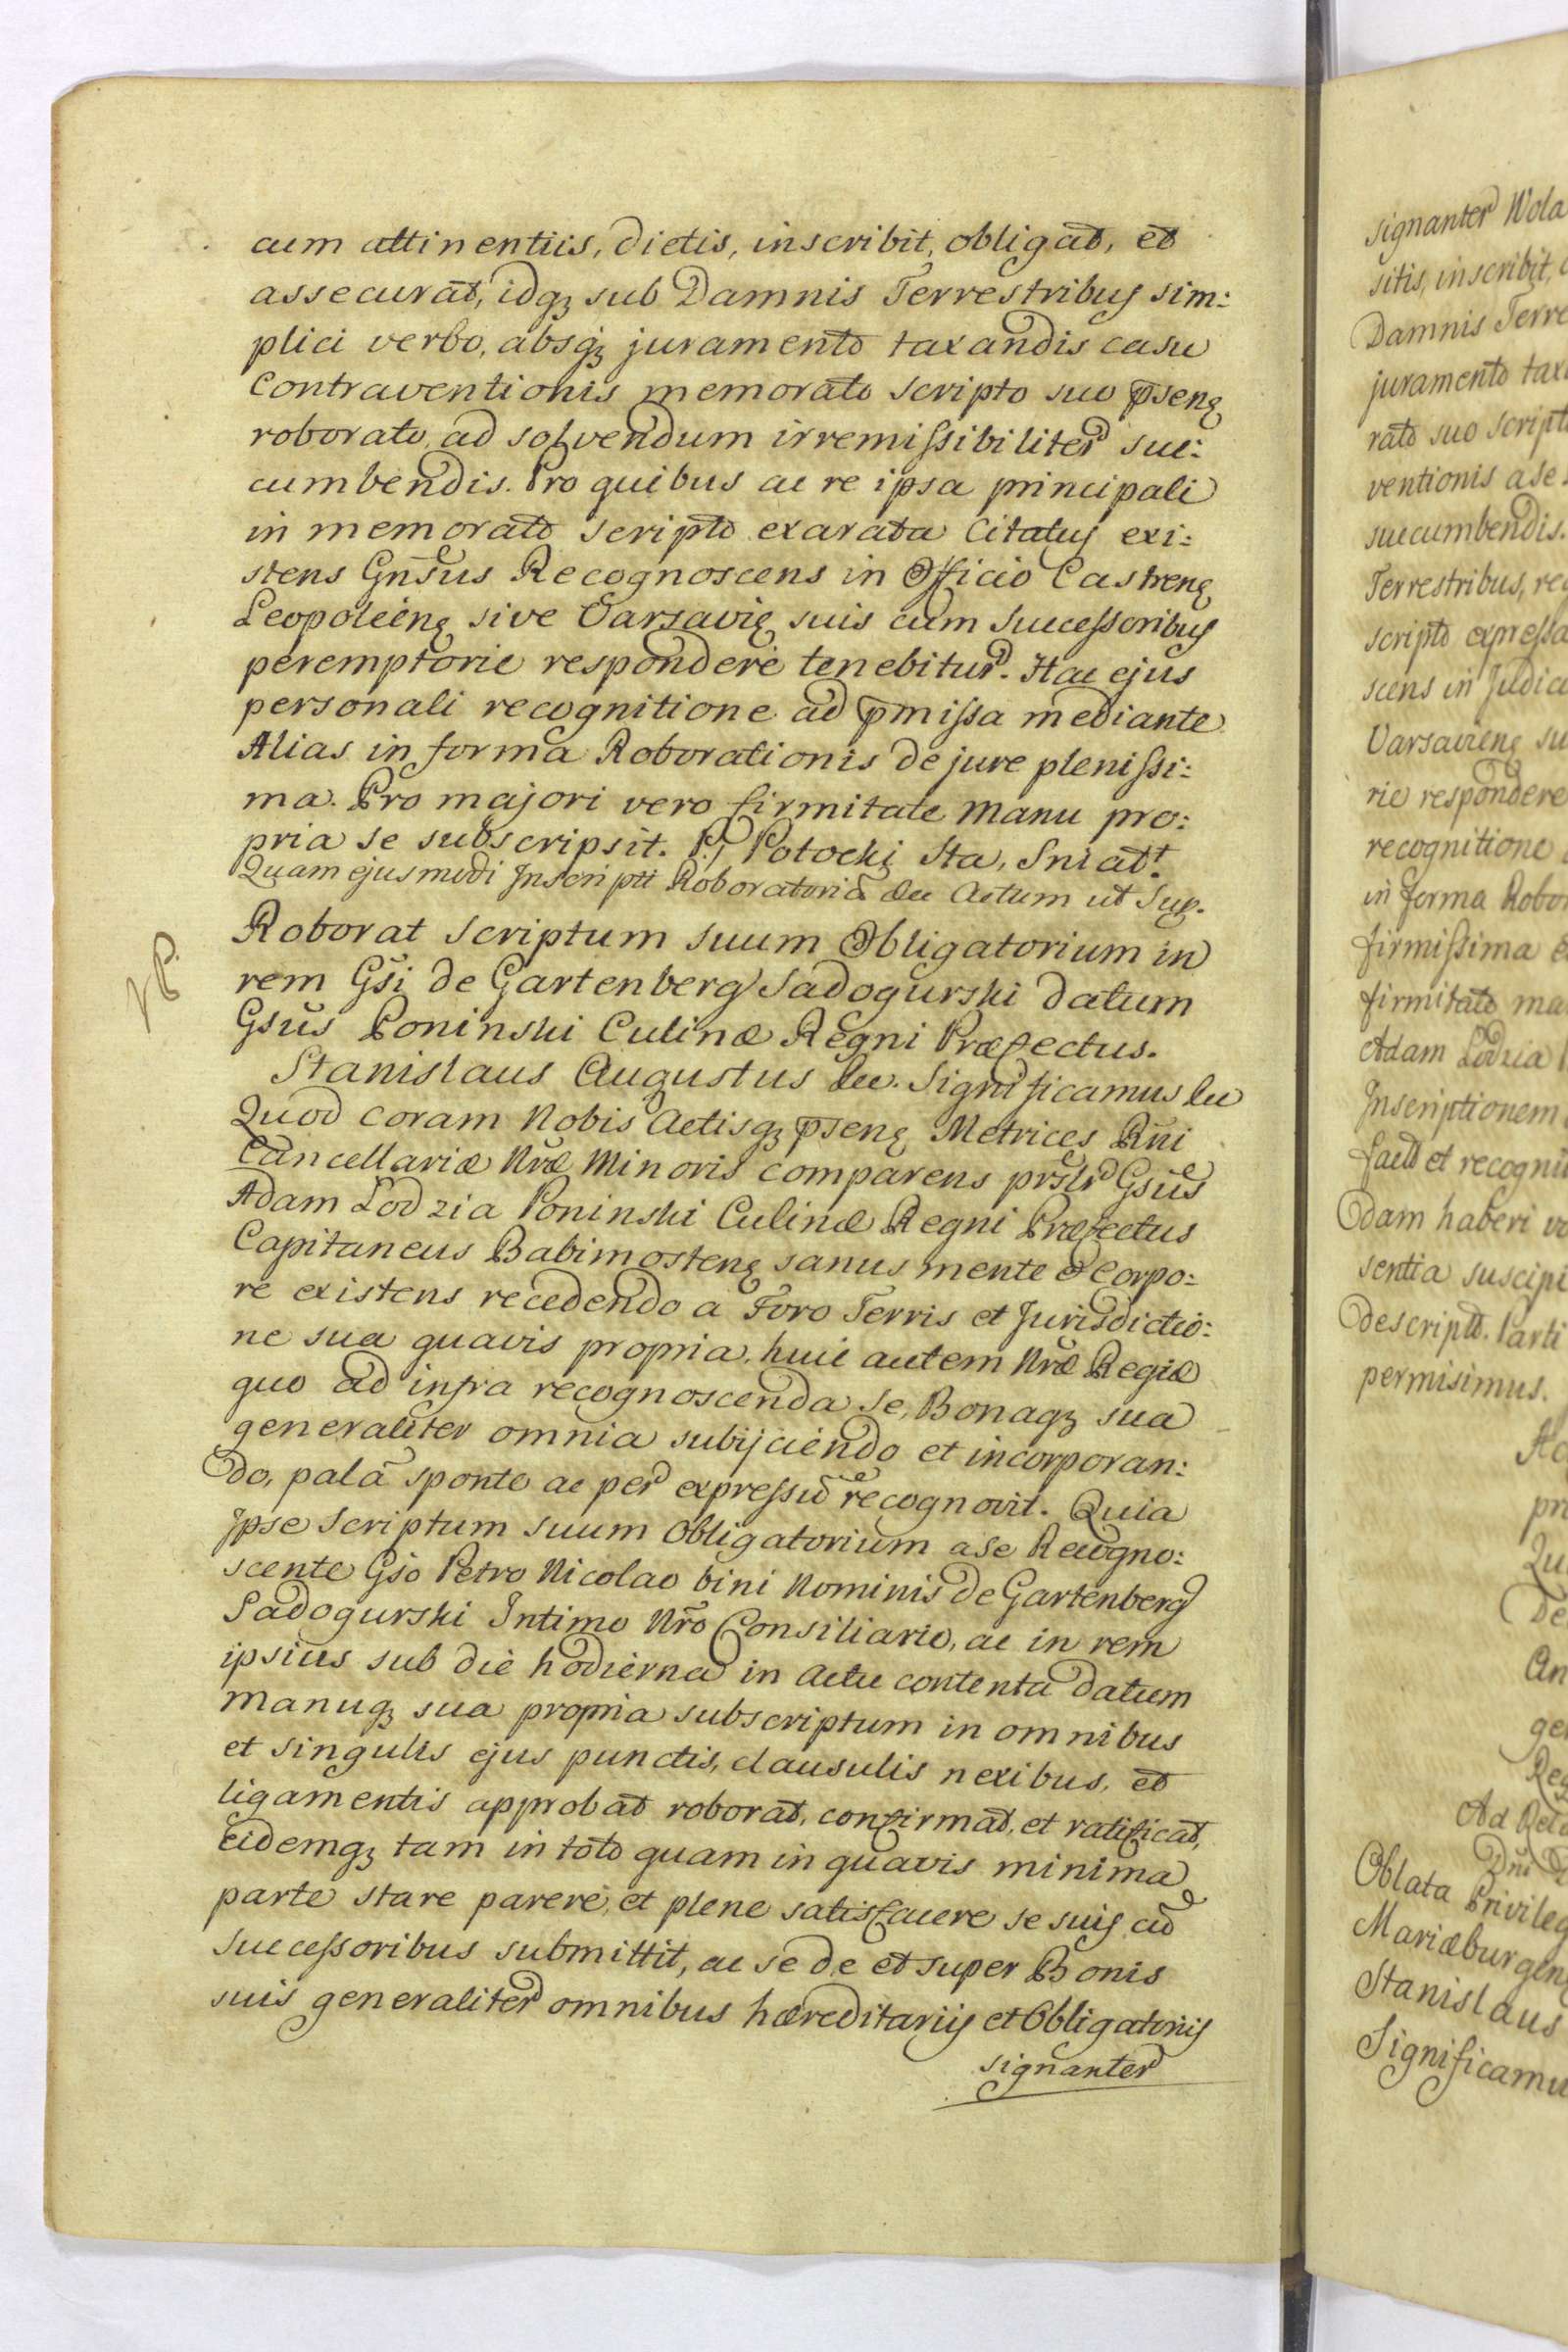 cum attinentiis, dictis, inscribit, obligat, et
assecurat, idqꝫ sub Damnis Terrestribus sim:
plici verbo, absqꝫ juramento taxandis casu
contraventionis memorato scripto suo p̄senꝫ
roborato, ad solvendum irremissibiliter suc:
cumbendis. Pro quibus ac re ipsa principali
in memorato scripto exarata Citatus exi:
stens Gn̄sus Recognoscens in Officio Castrenꝫ
Leopolienꝫ sive Varsavię suis cum Successoribus
peremptorie respondere tenebitur. Hac ejus
personali recognitione ad p̄missa mediante
Alias in forma Roborationis de jure plenissi:
ma. Pro majori vero firmitate manu pro:
pria se subscripsit. PJ Potocki Sta, Sniatt.
Quam ejusmodi Inscripti Roboratoriã &c Actum ut Sup.
NP.
Roborat Scriptum suum Obligatorium in
rem Gsi de Gartenberg Sadogurski datum
Gsūs Poninski Culinæ Regni Præfectus.
Stanislaus Augustus &c. Significamus &c
Quod coram Nobis Actisqꝫ p̄senꝫ Metrices Rñi
Cancellariæ Nræ Minoris comparens prslr Gsūs
Adam Lodzia Poninski Culinæ Regni Præfectus
Capitaneus Babimostenꝫ sanus mente & Corpo:
re existens recedendo a Foro Terris et Jurisdictio:
ne sua quavis propria, huic autem Nræ Regiæ
quo ad infra recognoscenda Se, Bonaqꝫ sua
generaliter omnia subijciendo et incorporan:
do, palã sponte ac per expressũ recognovit. Quia
Ipse Scriptum suum Obligatorium a Se Recogno:
scente Gso Petro Nicolao bini Nominis de Gartenberg
Sadogurski Intimo Nro Consiliario, ac in rem
ipsius sub die hodierna in Actu contenta datum
manuqꝫ sua propria subscriptum in omnibus
et singulis ejus punctis, clausulis nexibus, et
ligamentis approbat roborat, confirmat, et ratificat,
eidemqꝫ tam in toto quam in quavis minima
parte stare parere, et plene satisfacere se suis cũ
Successoribus submittit, ac se de et super Bonis
suis generaliter omnibus hæreditariis et Obligatoriis
signanter
signanter Wola
sitis, inscribit,
Damnis Terre
juramento tax
rato suo script
ventionis a se
succumbendis.
Terrestribus, re
scripto expressa
scens in Judic
Varsavienꝫ su
rie respondere
recognitione
in forma Robo
firmissima
firmitate ma
Adam Lodzia
Inscriptionem
facto et recogni
dam haberi vo
sentia suscipi
descripto. Parti
permisimus.
pr
Qu
De
An
ge
Reg
Ad Rela
Dñi
Oblata Privileg
Mariæburgen
Stanislaus
Significamu